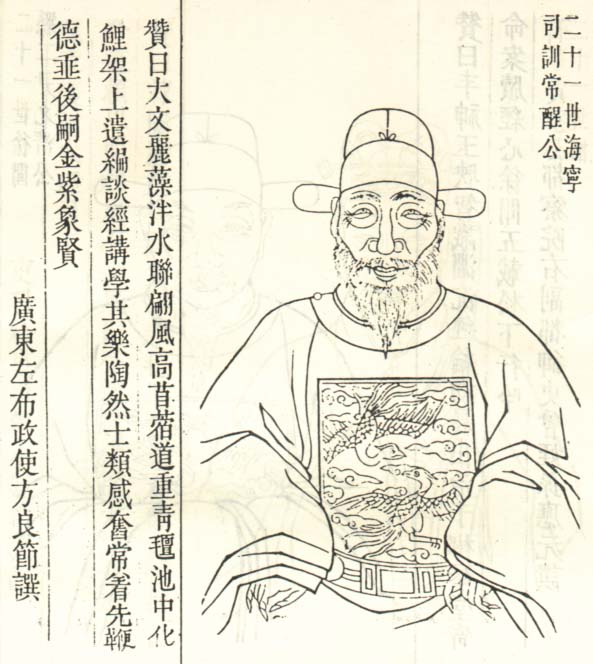 二十一世海寧
司訓常醒公
贊曰大文麗藻泮水聯翩風高苜蓿道重靑氊池中化
鯉架上遺編談經講學其樂陶然士類感奮常着先鞭
德垂後嗣金紫象賢
廣東左布政使方良節譔